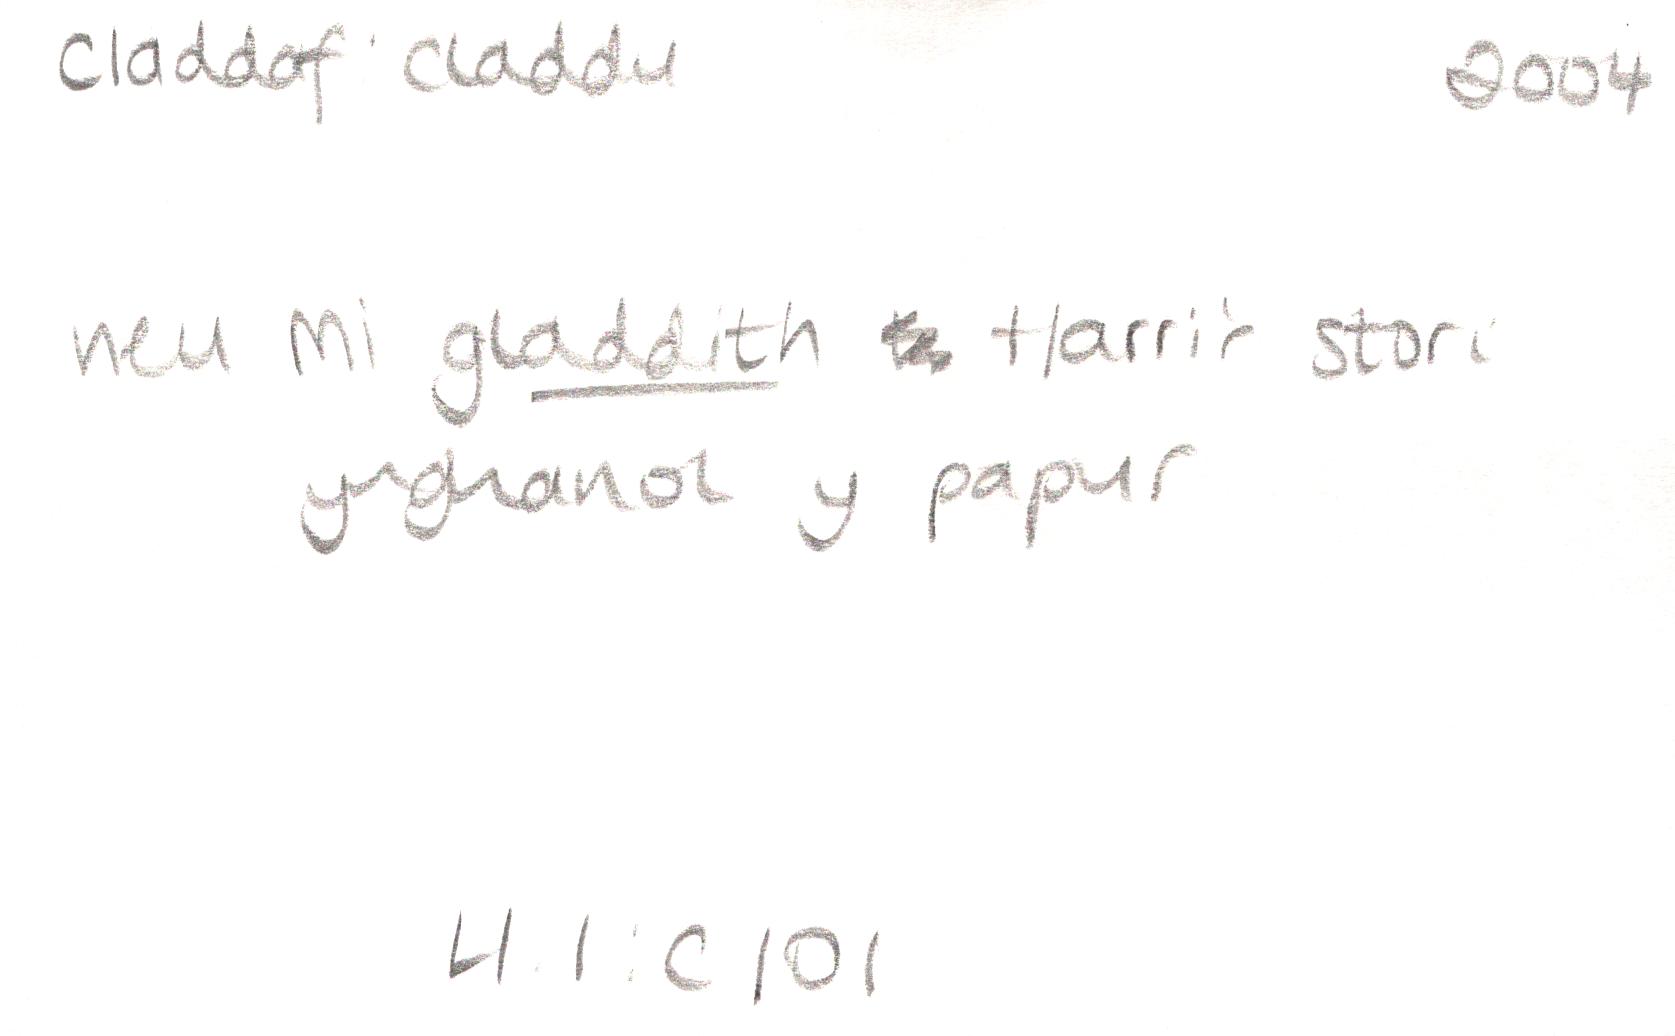 claddaf: claddu 2004
neu mi gladdith Harri'r stori
ynghanol y papur
4.1:C/01